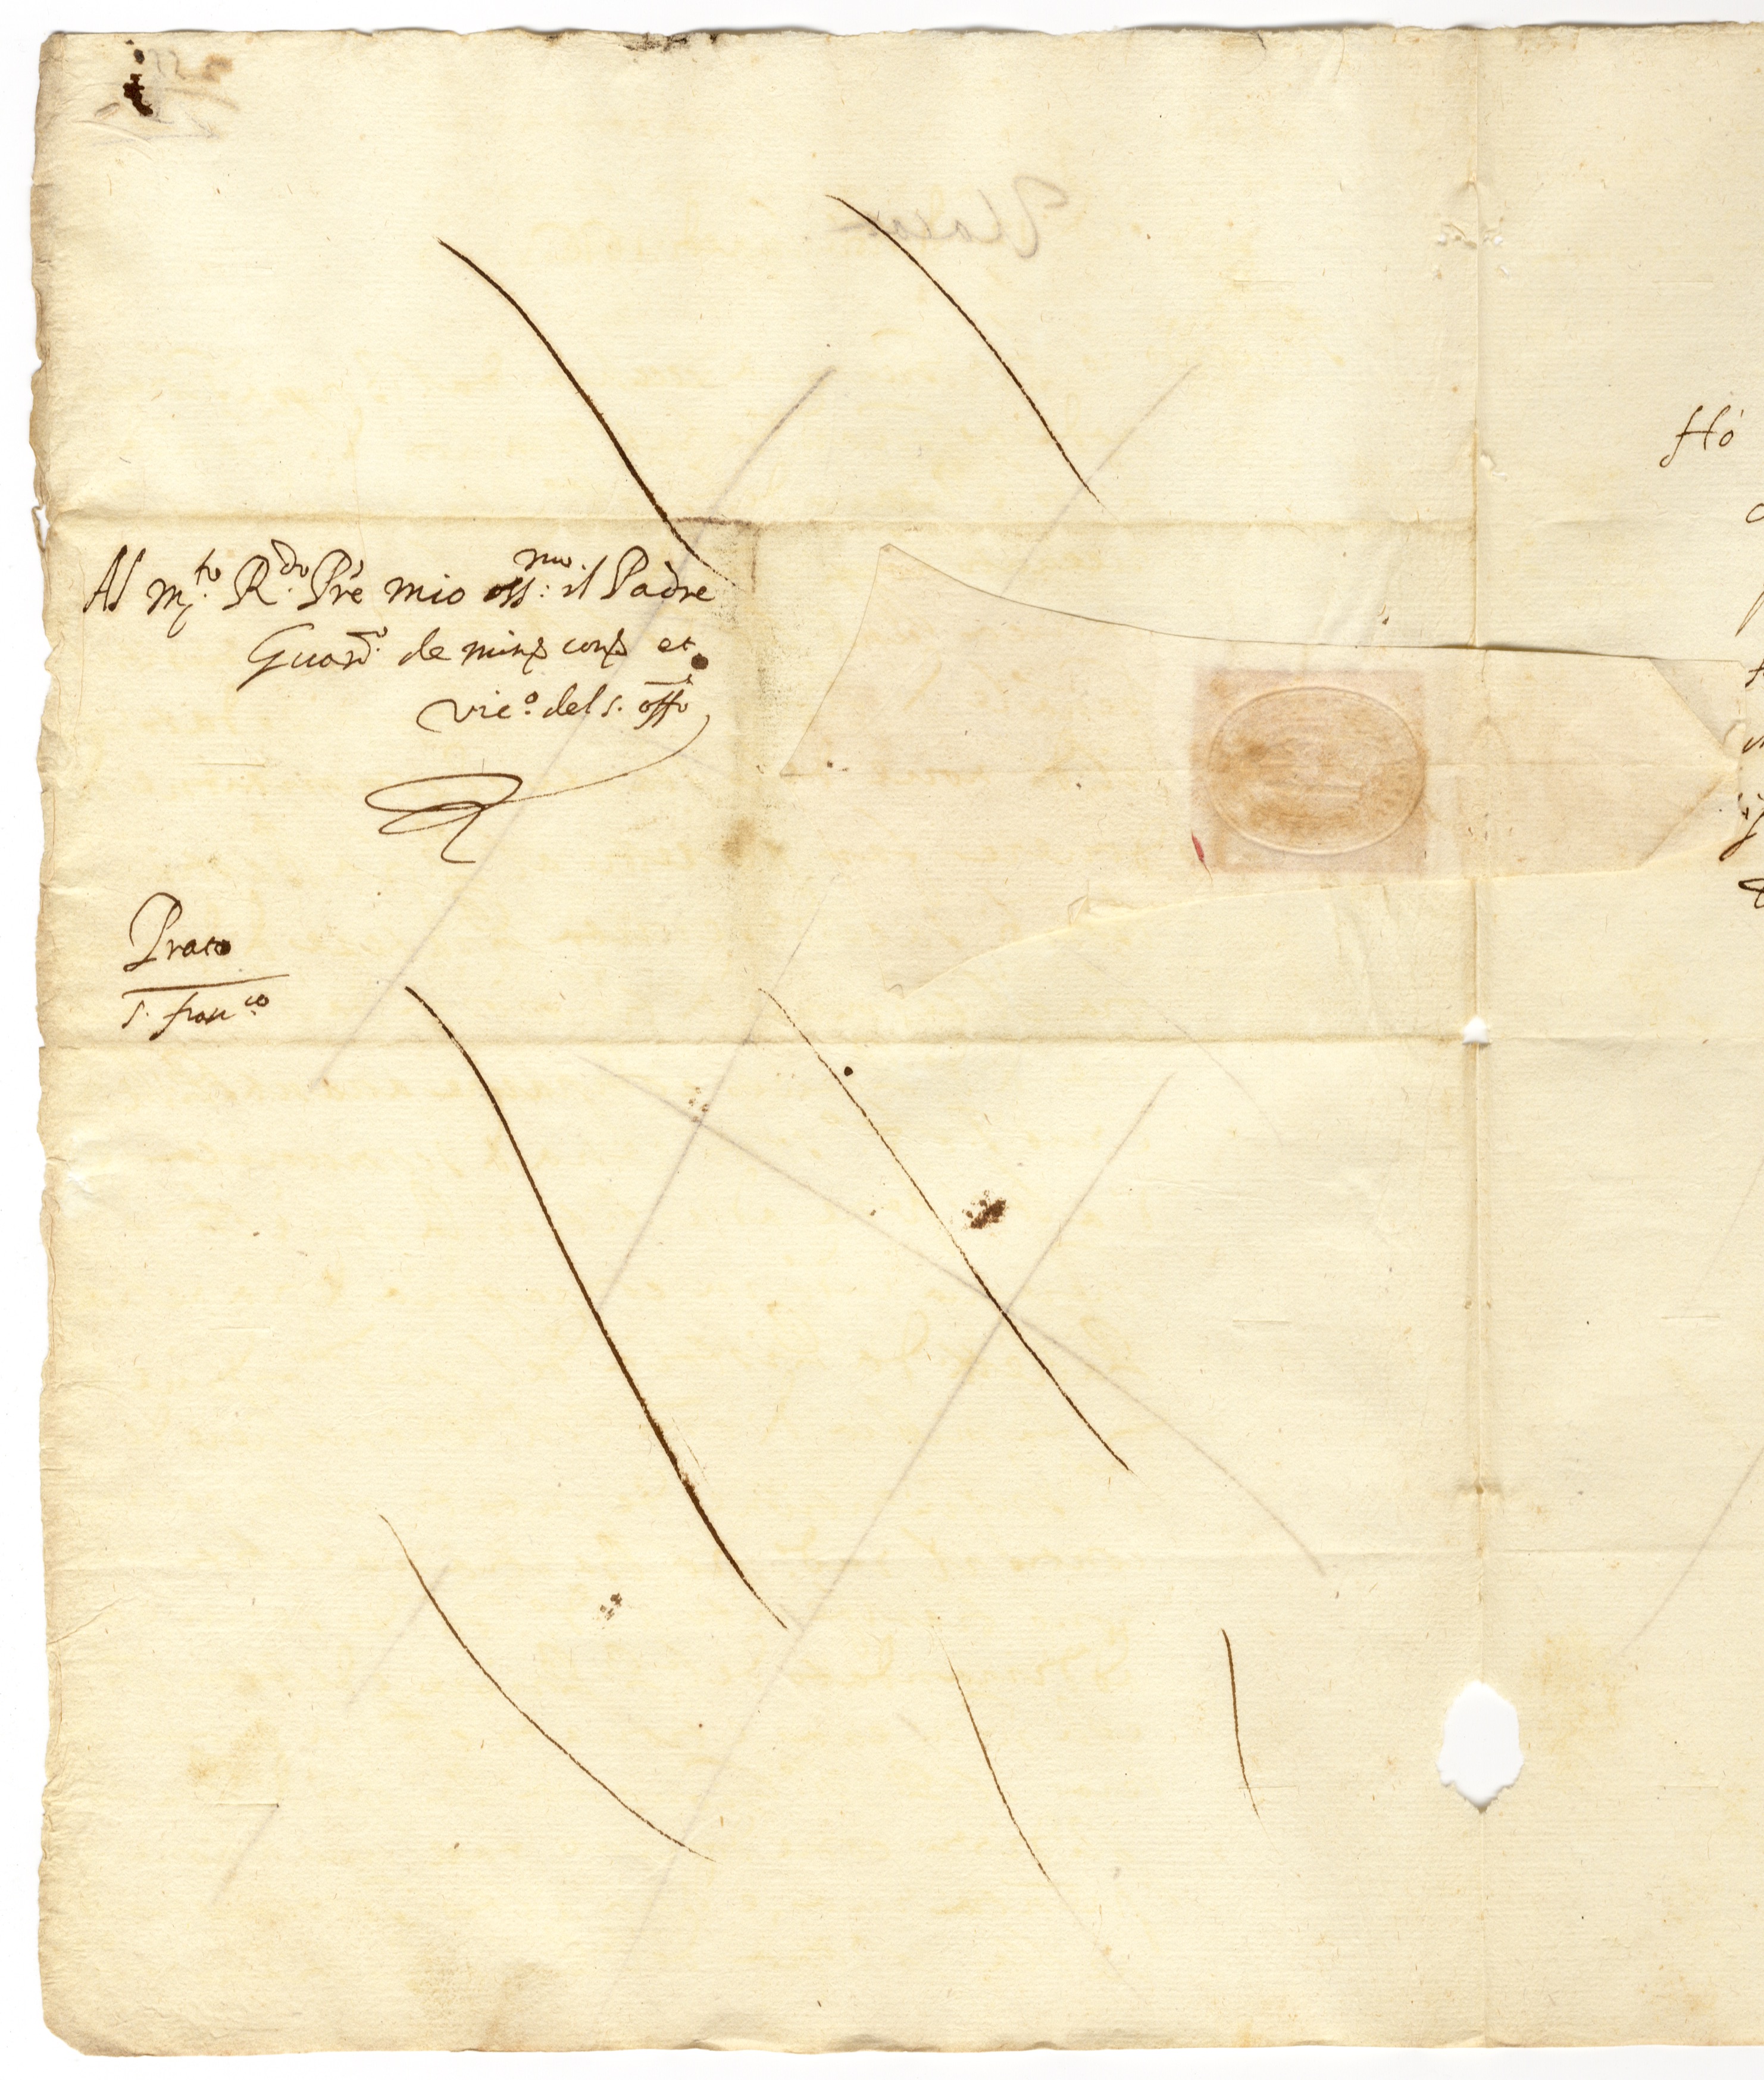 Al m.to R.do Pre mio oss.mo il Padre
Guard.o de min. con. et
vic.o del s. offo
Prato
s. fran.co
Hó